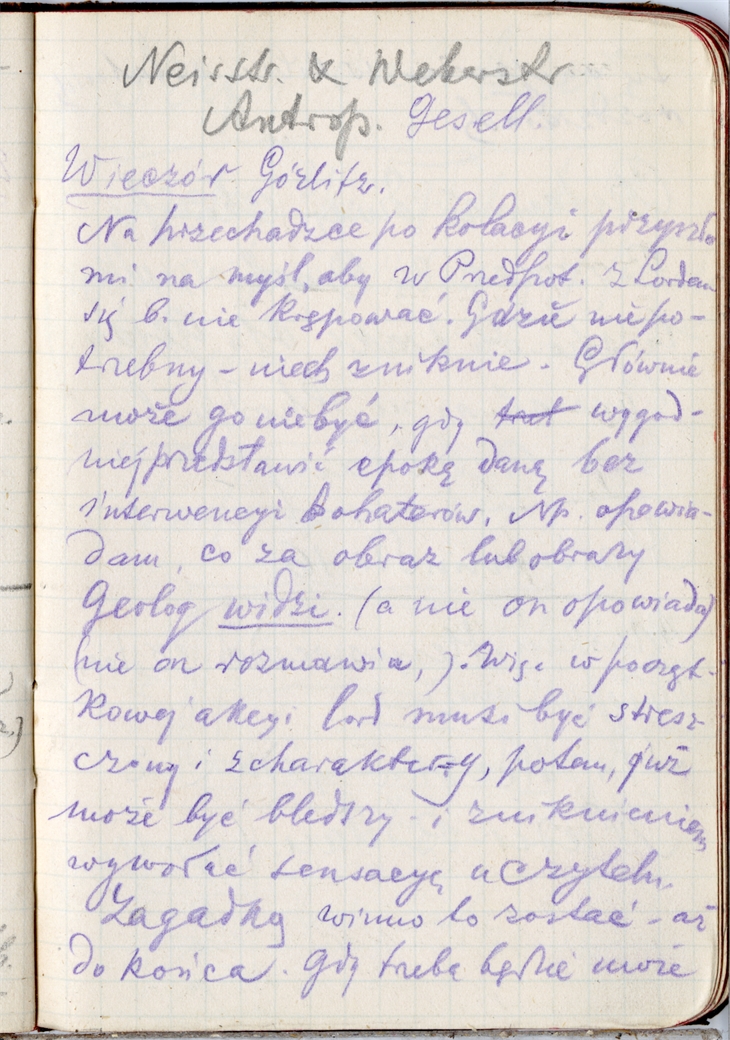 Neisstr. & Wekerstr
Antrop. Gesell.
Wieczór Görlitz.
Na przechadzce po kolacyi przyszło
mi na myśl, aby w Przedpot. z Lordem
się b. nie krępować. Gdzie niepo-
trzebny – niech zniknie. Głównie
może go niebyć, gdy wygod-
niej przedstawić epokę daną bez
interwencyi bohaterów. Np. opowia-
dam, co za obraz lub obrazy
Geolog widzi. (a nie on opowiada)
(nie on rozmawia,). Więc w począt-
kowej akcyi lord musi być stresz
czony i scharakter-y, potem, już
może być bledszy – i zniknieniem
wywołać sensacyę u czyteln.
Zagadką winno to zostać – aż
do końca. Gdy trzeba będzie może